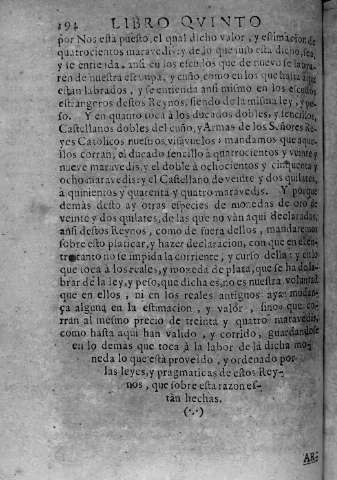 194 LIBRO QVINTO
por Nos està puesto, el qual dicho valor, y estimacion de
quatrocientos maravedis: y de lo que justo està dicho, sea,
y se entienda, ansi en los escudos que de nuevo se labra-
ren de nuestra estampa, y cuño, como en los que hasta aqui
estàn labrados, y se entienda ansi mismo en los escudos
estrangeros destos Reynos, siendo de la misma ley, y pe-
so. Y en quanto toca à los ducados dobles, y sencillos,
Castellanos dobles del cuño, y Armas de los Señores Re-
yes Catolicos nuestros visavuelos: mandamos que aque-
llos corran, el ducado sencillo à quatrocientos y veinte y
nueve maravedis, y el doble à ochocientos y cinquenta y
ocho maravedis: y el Castellano de veinte y dos quilates,
à quinientos y quarenta y quatro maravedis. Y porque
demàs desto ay otras especies de monedas de oro de
veinte y dos quilates, de las que no vàn aqui declaradas,
ansi destos Reynos, como de fuera dellos, mandaremos
sobre esto platicar, y hazer declaracion, con que en el en-
tretanto no se impida la corriente, y curso della: y en lo
que toca à los reales, y moneda de plata, que se ha de la-
brar de la ley, y peso, que dicha es, no es nuestra voluntad
que en ellos, ni en los reales antiguos aya mudan-
ça alguna en la estimacion, y valor, sino que co-
rran al mesmo precio de treinta y quatro maravedis,
como hasta aqui han valido, y corrido, guardandose
en lo demàs que toca à la labor de la dicha mo-
neda lo que està proveido, y ordenado por
las leyes, y pragmaticas de estos Rey-
nos, que sobre esta razon es-
tàn hechas.
(∴)
AR-